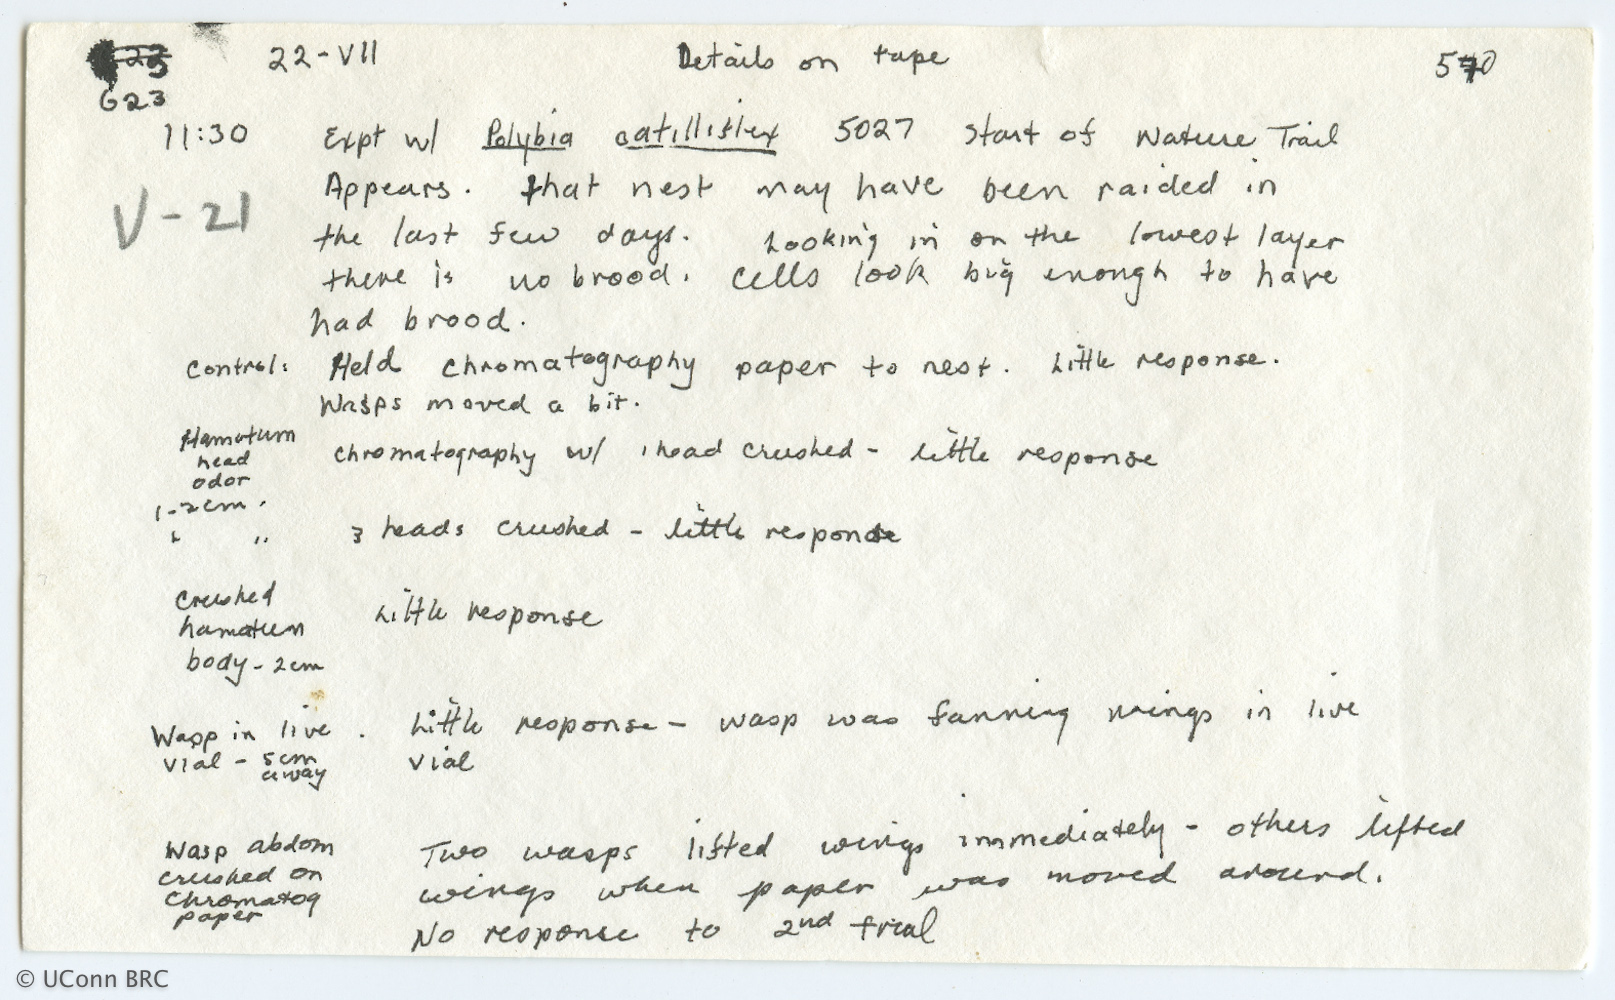 22-VII Details on tape 570
G23
11:30 Expt w/ Polybia catillifex 5027 Start of Nature Trail
V-21 Appears. that nest may have been raided in
the last few days. Looking in on the lowest layer
there is no brood. Cells look big enough to have
had brood.
Control: Held chromatography paper to nest. Little response.
Wasps moved a bit.
Hamatum head odor 1-2cm. chromatography w/ 1 head crushed - little response
" " 3 heads crushed - little response
Crushed hamatum body - 2cm Little response
Wasp in live vial - 5cm away . Little response - wasp was fanning wings in live
vial
Wasp abdom crushed on chromatog paper Two wasps lifted wings immediately - others lifted
wings when paper was moved around.
No response to 2nd trial
© UConn BRC